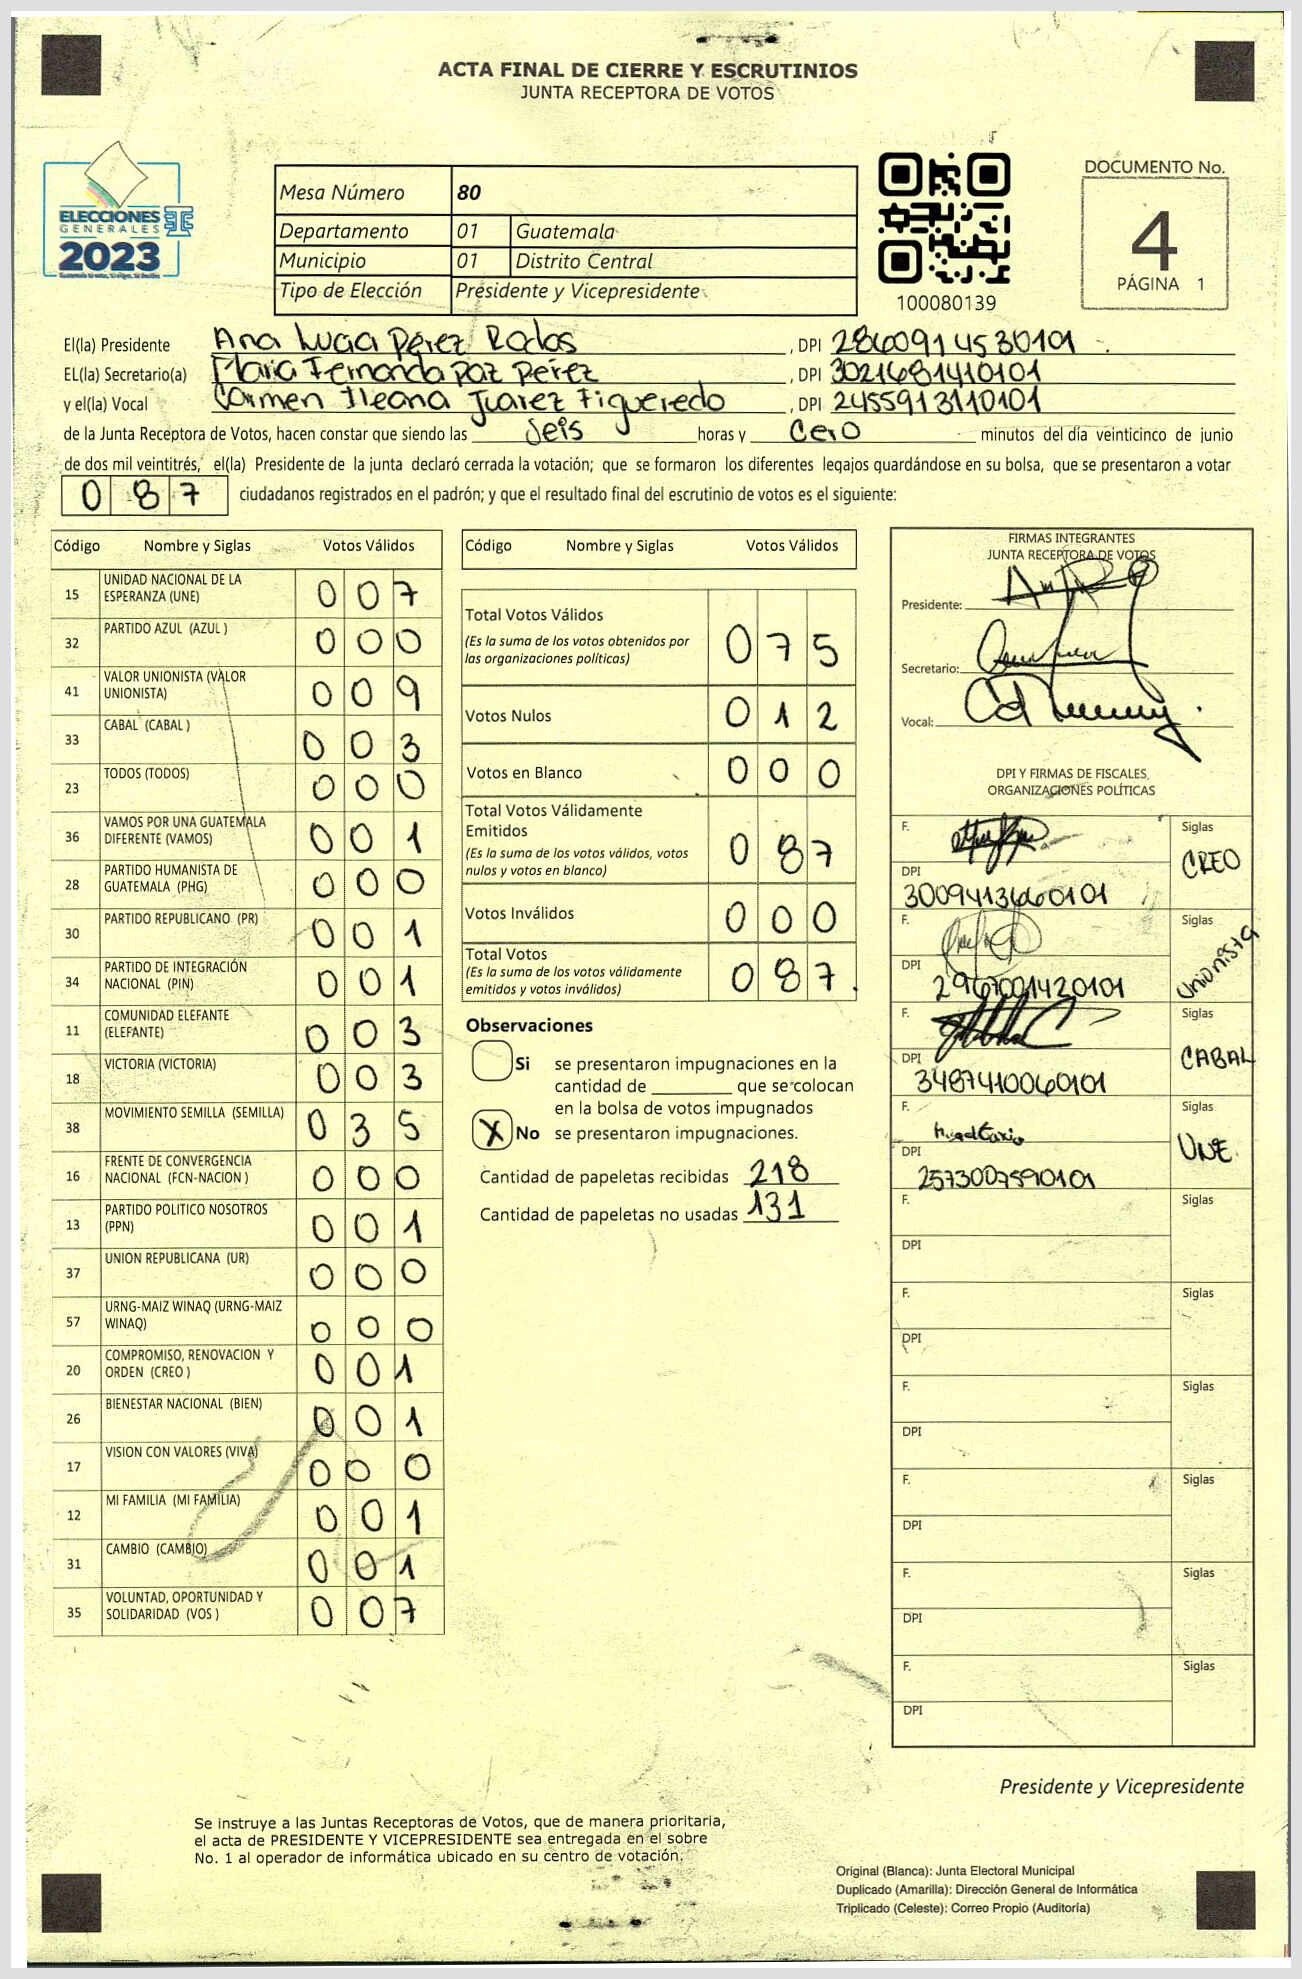 ACTA FINAL DE CIERRE Y ESCRUTINIOS
JUNTA RECEPTORA DE VOTOS
ELECCIONES
GENERALES
2023
Mesa Número 80
Departamento 01 Guatemala
Municipio 01 Distrito Central
Tipo de Elección Presidente y Vicepresidente
100080139
DOCUMENTO No.
4
PÁGINA 1
El(la) Presidente Ana Lucia Pérez Rodas, DPI 2860914530101
EL(la) Secretario(a) Maria Fernanda Paz Pérez, DPI 3021681410101
y el(la) Vocal Carmen Ileana Juarez Figueredo, DPI 2455913110101
de la Junta Receptora de Votos, hacen constar que siendo las seis horas y cero minutos del día veinticinco de junio
de dos mil veintitrés, el(la) Presidente de la junta declaró cerrada la votación; que se formaron los diferentes legajos guardándose en su bolsa, que se presentaron a votar
087 ciudadanos registrados en el padrón; y que el resultado final del escrutinio de votos es el siguiente:
Código Nombre y Siglas Votos Válidos
15 UNIDAD NACIONAL DE LA ESPERANZA (UNE) 007
32 PARTIDO AZUL (AZUL ) 000
41 VALOR UNIONISTA (VALOR UNIONISTA) 009
33 CABAL (CABAL ) 003
23 TODOS (TODOS) 000
36 VAMOS POR UNA GUATEMALA DIFERENTE (VAMOS) 001
28 PARTIDO HUMANISTA DE GUATEMALA (PHG) 000
30 PARTIDO REPUBLICANO (PR) 001
34 PARTIDO DE INTEGRACIÓN NACIONAL (PIN) 001
11 COMUNIDAD ELEFANTE (ELEFANTE) 003
18 VICTORIA (VICTORIA) 003
38 MOVIMIENTO SEMILLA (SEMILLA) 035
16 FRENTE DE CONVERGENCIA NACIONAL (FCN-NACION ) 000
13 PARTIDO POLITICO NOSOTROS (PPN) 001
37 UNION REPUBLICANA (UR) 000
57 URNG-MAIZ WINAQ (URNG-MAIZ WINAQ) 000
20 COMPROMISO, RENOVACION Y ORDEN (CREO ) 001
26 BIENESTAR NACIONAL (BIEN) 001
17 VISION CON VALORES (VIVA) 000
12 MI FAMILIA (MI FAMILIA) 001
31 CAMBIO (CAMBIO) 001
35 VOLUNTAD, OPORTUNIDAD Y SOLIDARIDAD (VOS ) 007
Código Nombre y Siglas Votos Válidos
Total Votos Válidos 075
(Es la suma de los votos obtenidos por
las organizaciones políticas)
Votos Nulos 012
Votos en Blanco 000
Total Votos Válidamente
Emitidos 087
(Es la suma de los votos válidos, votos
nulos y votos en blanco)
Votos Inválidos 000
Total Votos 087
(Es la suma de los votos válidamente
emitidos y votos inválidos)
Observaciones
Si se presentaron impugnaciones en la
cantidad de ________ que se colocan
en la bolsa de votos impugnados
X No se presentaron impugnaciones.
Cantidad de papeletas recibidas 218
Cantidad de papeletas no usadas 131
FIRMAS INTEGRANTES
JUNTA RECEPTORA DE VOTOS
Presidente:
Secretario:
Vocal:
DPI Y FIRMAS DE FISCALES
ORGANIZACIONES POLÍTICAS
F. Siglas
CREO
DPI
3009413660101
F. Siglas
Unionista
DPI
2967001420101
F. Siglas
CABAL
DPI
3487410060101
F. Siglas
UNE
DPI
2573007590101
F. Siglas
DPI
F. Siglas
DPI
F. Siglas
DPI
F. Siglas
DPI
F. Siglas
DPI
F. Siglas
DPI
Presidente y Vicepresidente
Se instruye a las Juntas Receptoras de Votos, que de manera prioritaria,
el acta de PRESIDENTE Y VICEPRESIDENTE sea entregada en el sobre
No. 1 al operador de informática ubicado en su centro de votación.
Original (Blanca): Junta Electoral Municipal
Duplicado (Amarilla): Dirección General de Informática
Triplicado (Celeste): Correo Propio (Auditoría)